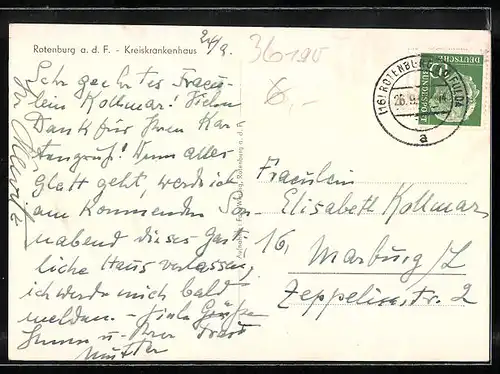 Rotenburg a. d. F. - Kreiskrankenhaus
26/9.
Sehr geehrtes Fräu-
lein Kollmar! Vielen
Dank für Ihren Kar-
tengruß! Wenn alles
glatt geht, werde ich
am kommenden Son-
nabend dieses gast-
liche Haus verlassen,
ich werde mich bald
melden. - Viele Grüße
Ihnen u. Ihrer
Mutter
36-190
6,-
(16) ROTENBURG (FULDA)
26.9.
a
DEUTSCHE
BUNDESPOST
Fräulein
Elisabeth Kollmar
16, Marburg/L
Zeppelinstr. 2